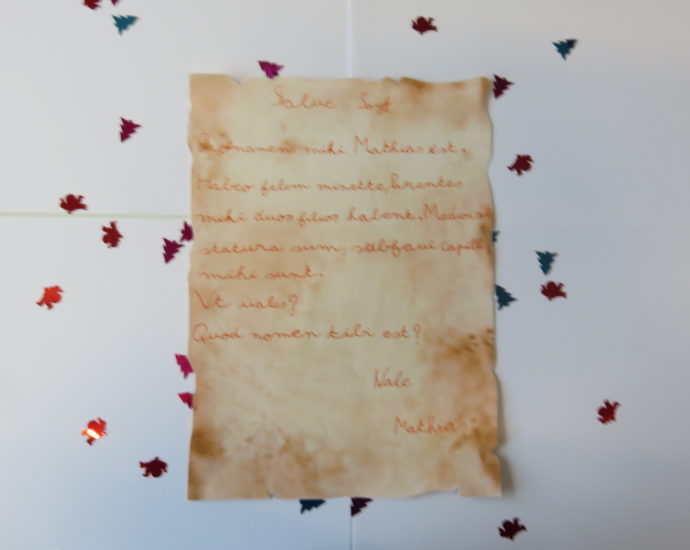 Salve
mihi Mathias est.
Habeo felem minette, Parentes
mihi duos filios habent. Mediocri
statura sum, capilli
mihi sunt.
Vt uales?
Quod nomen tibi est?
Vale
Mathias